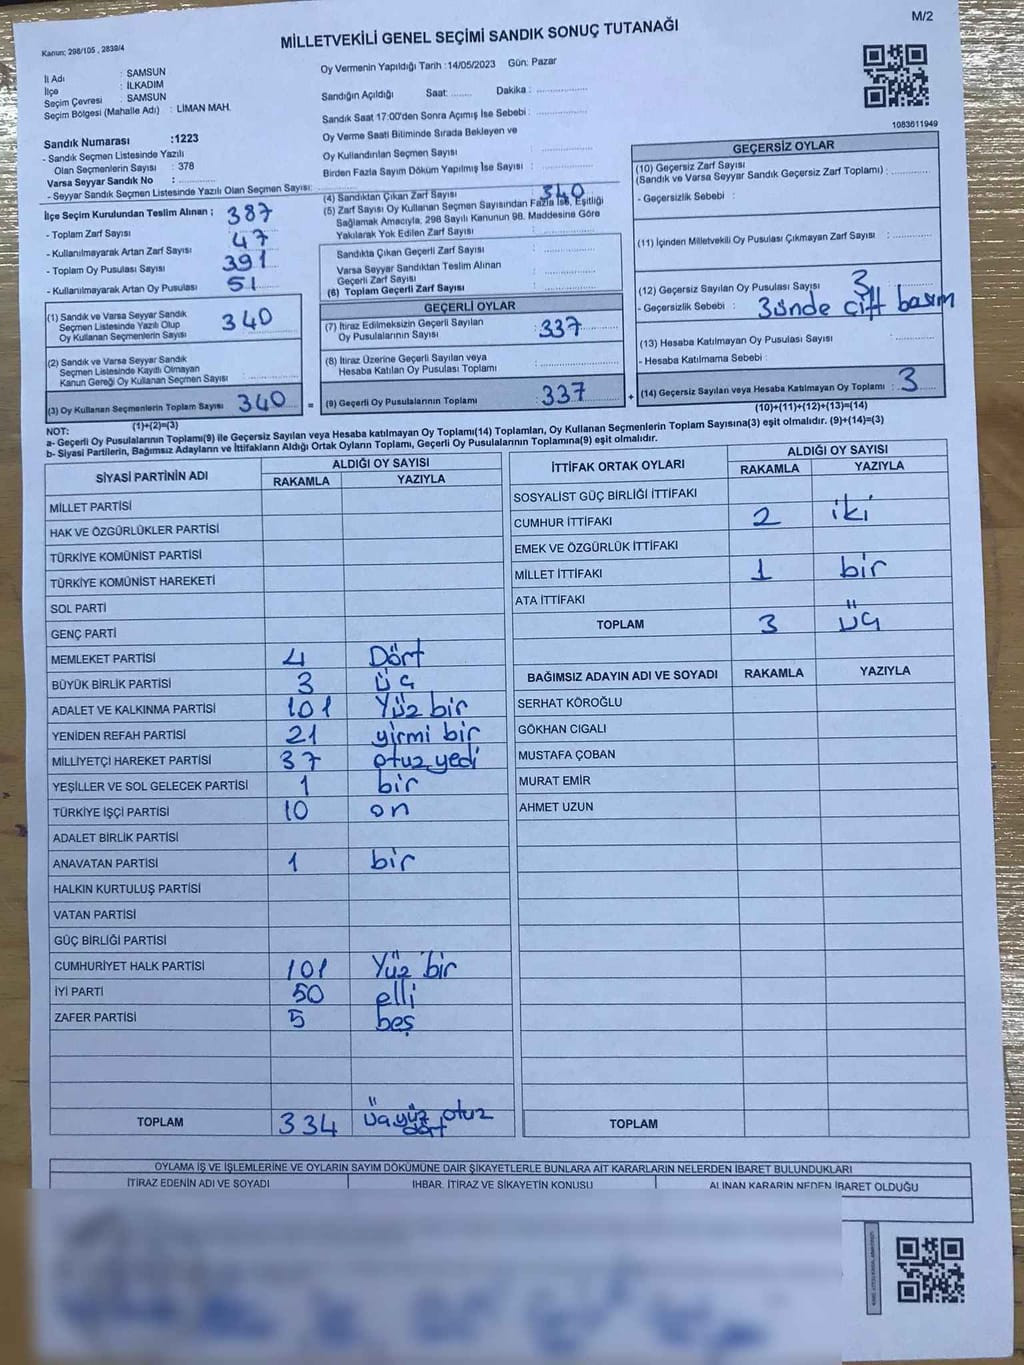 M/2
Kanun; 298/105 , 2839/4
MİLLETVEKİLİ GENEL SEÇİMİ SANDIK SONUÇ TUTANAĞI
İl Adı : SAMSUN
İlçe : İLKADIM
Seçim Çevresi : SAMSUN
Seçim Bölgesi (Mahalle Adı) : LİMAN MAH.
Oy Vermenin Yapıldığı Tarih :14/05/2023 Gün: Pazar
Sandığın Açıldığı Saat: ........ Dakika : ................
Sandık Saat 17:00'den Sonra Açımış İse Sebebi : ................
Oy Verme Saati Bitiminde Sırada Bekleyen ve
Oy Kullandırılan Seçmen Sayısı : ................
Birden Fazla Sayım Döküm Yapılmış İse Sayısı : ................
1083611949
Sandık Numarası :1223
- Sandık Seçmen Listesinde Yazılı
Olan Seçmenlerin Sayısı : 378
Varsa Seyyar Sandık No : ................
- Seyyar Sandık Seçmen Listesinde Yazılı Olan Seçmen Sayısı: ................
İlçe Seçim Kurulundan Teslim Alınan ;
- Toplam Zarf Sayısı 387
- Kullanılmayarak Artan Zarf Sayısı 47
- Toplam Oy Pusulası Sayısı 391
- Kullanılmayarak Artan Oy Pusulası 51
(1) Sandık ve Varsa Seyyar Sandık
Seçmen Listesinde Yazılı Olup
Oy Kullanan Seçmenlerin Sayısı 340
(2) Sandık ve Varsa Seyyar Sandık
Seçmen Listesinde Kayıtlı Olmayan
Kanun Gereği Oy Kullanan Seçmen Sayısı
(3) Oy Kullanan Seçmenlerin Toplam Sayısı 340
(1)+(2)=(3)
(4) Sandıktan Çıkan Zarf Sayısı : 340
(5) Zarf Sayısı Oy Kullanan Seçmen Sayısından Fazla İse, Eşitliği
Sağlamak Amacıyla, 298 Sayılı Kanunun 98. Maddesine Göre
Yakılarak Yok Edilen Zarf Sayısı
Sandıkta Çıkan Geçerli Zarf Sayısı
Varsa Seyyar Sandıktan Teslim Alınan
Geçerli Zarf Sayısı
(6) Toplam Geçerli Zarf Sayısı
GEÇERLİ OYLAR
(7) İtiraz Edilmeksizin Geçerli Sayılan
Oy Pusulalarının Sayısı 337
(8) İtiraz Üzerine Geçerli Sayılan veya
Hesaba Katılan Oy Pusulası Toplamı
= (9) Geçerli Oy Pusulalarının Toplamı 337
GEÇERSİZ OYLAR
(10) Geçersiz Zarf Sayısı
(Sandık ve Varsa Seyyar Sandık Geçersiz Zarf Toplamı) : ................
- Geçersizlik Sebebi :
(11) İçinden Milletvekili Oy Pusulası Çıkmayan Zarf Sayısı : ................
(12) Geçersiz Sayılan Oy Pusulası Sayısı 3
- Geçersizlik Sebebi : 3ünde çift basım
(13) Hesaba Katılmayan Oy Pusulası Sayısı
- Hesaba Katılmama Sebebi :
+ (14) Geçersiz Sayılan veya Hesaba Katılmayan Oy Toplamı : 3
(10)+(11)+(12)+(13)=(14)
NOT:
a- Geçerli Oy Pusulalarının Toplamı(9) ile Geçersiz Sayılan veya Hesaba katılmayan Oy Toplamı(14) Toplamları, Oy Kullanan Seçmenlerin Toplam Sayısına(3) eşit olmalıdır. (9)+(14)=(3)
b- Siyasi Partilerin, Bağımsız Adayların ve İttifakların Aldığı Ortak Oyların Toplamı, Geçerli Oy Pusulalarının Toplamına(9) eşit olmalıdır.
SİYASİ PARTİNİN ADI ALDIĞI OY SAYISI
RAKAMLA YAZIYLA
MİLLET PARTİSİ
HAK VE ÖZGÜRLÜKLER PARTİSİ
TÜRKİYE KOMÜNİST PARTİSİ
TÜRKİYE KOMÜNİST HAREKETİ
SOL PARTİ
GENÇ PARTİ
MEMLEKET PARTİSİ 4 Dört
BÜYÜK BİRLİK PARTİSİ 3 üç
ADALET VE KALKINMA PARTİSİ 101 Yüz bir
YENİDEN REFAH PARTİSİ 21 yirmi bir
MİLLİYETÇİ HAREKET PARTİSİ 37 otuz yedi
YEŞİLLER VE SOL GELECEK PARTİSİ 1 bir
TÜRKİYE İŞÇİ PARTİSİ 10 on
ADALET BİRLİK PARTİSİ
ANAVATAN PARTİSİ 1 bir
HALKIN KURTULUŞ PARTİSİ
VATAN PARTİSİ
GÜÇ BİRLİĞİ PARTİSİ
CUMHURİYET HALK PARTİSİ 101 Yüz bir
İYİ PARTİ 50 elli
ZAFER PARTİSİ 5 beş
TOPLAM 334 üçyüz otuz dört
İTTİFAK ORTAK OYLARI ALDIĞI OY SAYISI
RAKAMLA YAZIYLA
SOSYALİST GÜÇ BİRLİĞİ İTTİFAKI
CUMHUR İTTİFAKI 2 iki
EMEK VE ÖZGÜRLÜK İTTİFAKI
MİLLET İTTİFAKI 1 bir
ATA İTTİFAKI
TOPLAM 3 üç
BAĞIMSIZ ADAYIN ADI VE SOYADI RAKAMLA YAZIYLA
SERHAT KÖROĞLU
GÖKHAN CIGALI
MUSTAFA ÇOBAN
MURAT EMİR
AHMET UZUN
TOPLAM
OYLAMA İŞ VE İŞLEMLERİNE VE OYLARIN SAYIM DÖKÜMÜNE DAİR ŞİKAYETLERLE BUNLARA AİT KARARLARIN NELERDEN İBARET BULUNDUKLARI
İTİRAZ EDENİN ADI VE SOYADI İHBAR, İTİRAZ VE ŞİKAYETİN KONUSU ALINAN KARARIN NEDEN İBARET OLDUĞU